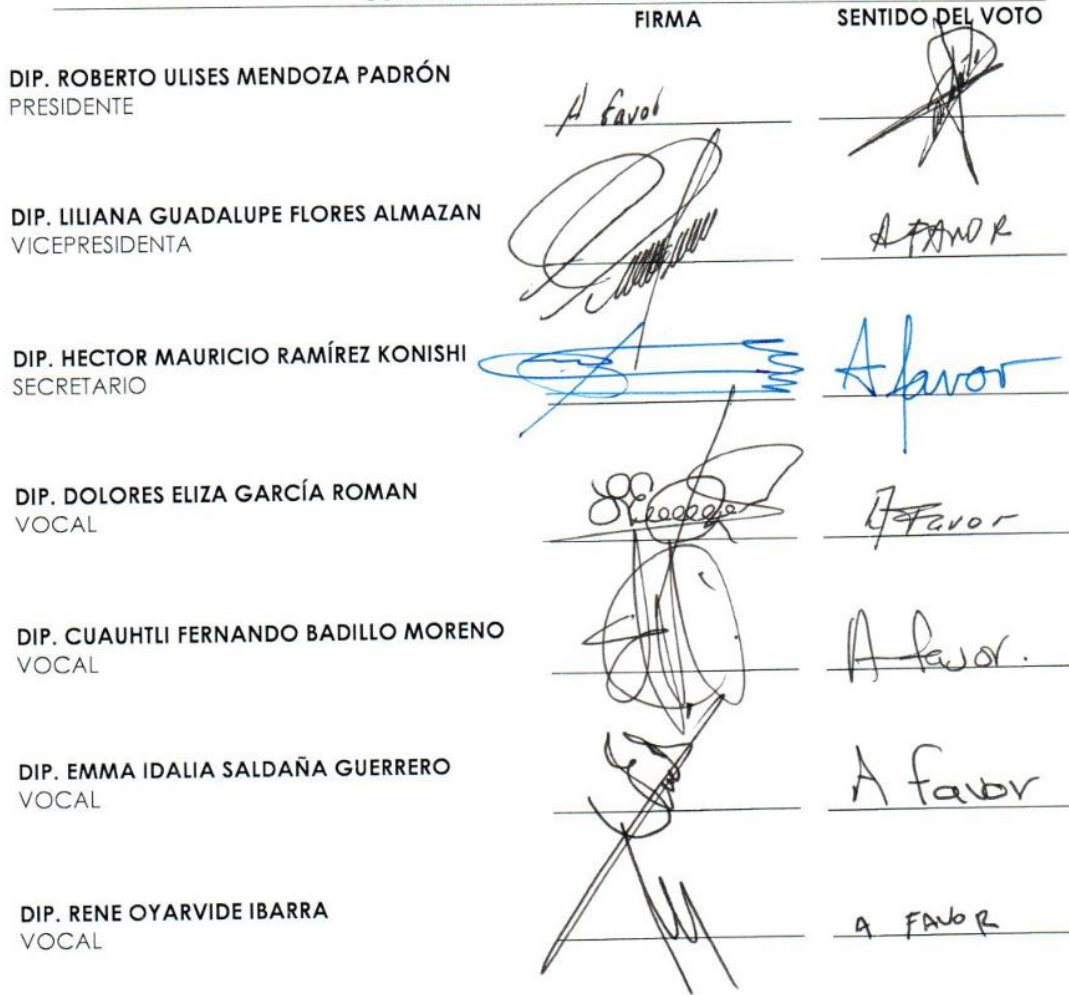 FIRMA SENTIDO DEL VOTO
DIP. ROBERTO ULISES MENDOZA PADRÓN
PRESIDENTE
A favor
DIP. LILIANA GUADALUPE FLORES ALMAZAN
VICEPRESIDENTA
A FAVOR
DIP. HECTOR MAURICIO RAMÍREZ KONISHI
SECRETARIO
A favor
DIP. DOLORES ELIZA GARCÍA ROMAN
VOCAL
A Favor
DIP. CUAUHTLI FERNANDO BADILLO MORENO
VOCAL
A favor.
DIP. EMMA IDALIA SALDAÑA GUERRERO
VOCAL
A favor
DIP. RENE OYARVIDE IBARRA
VOCAL
A FAVOR